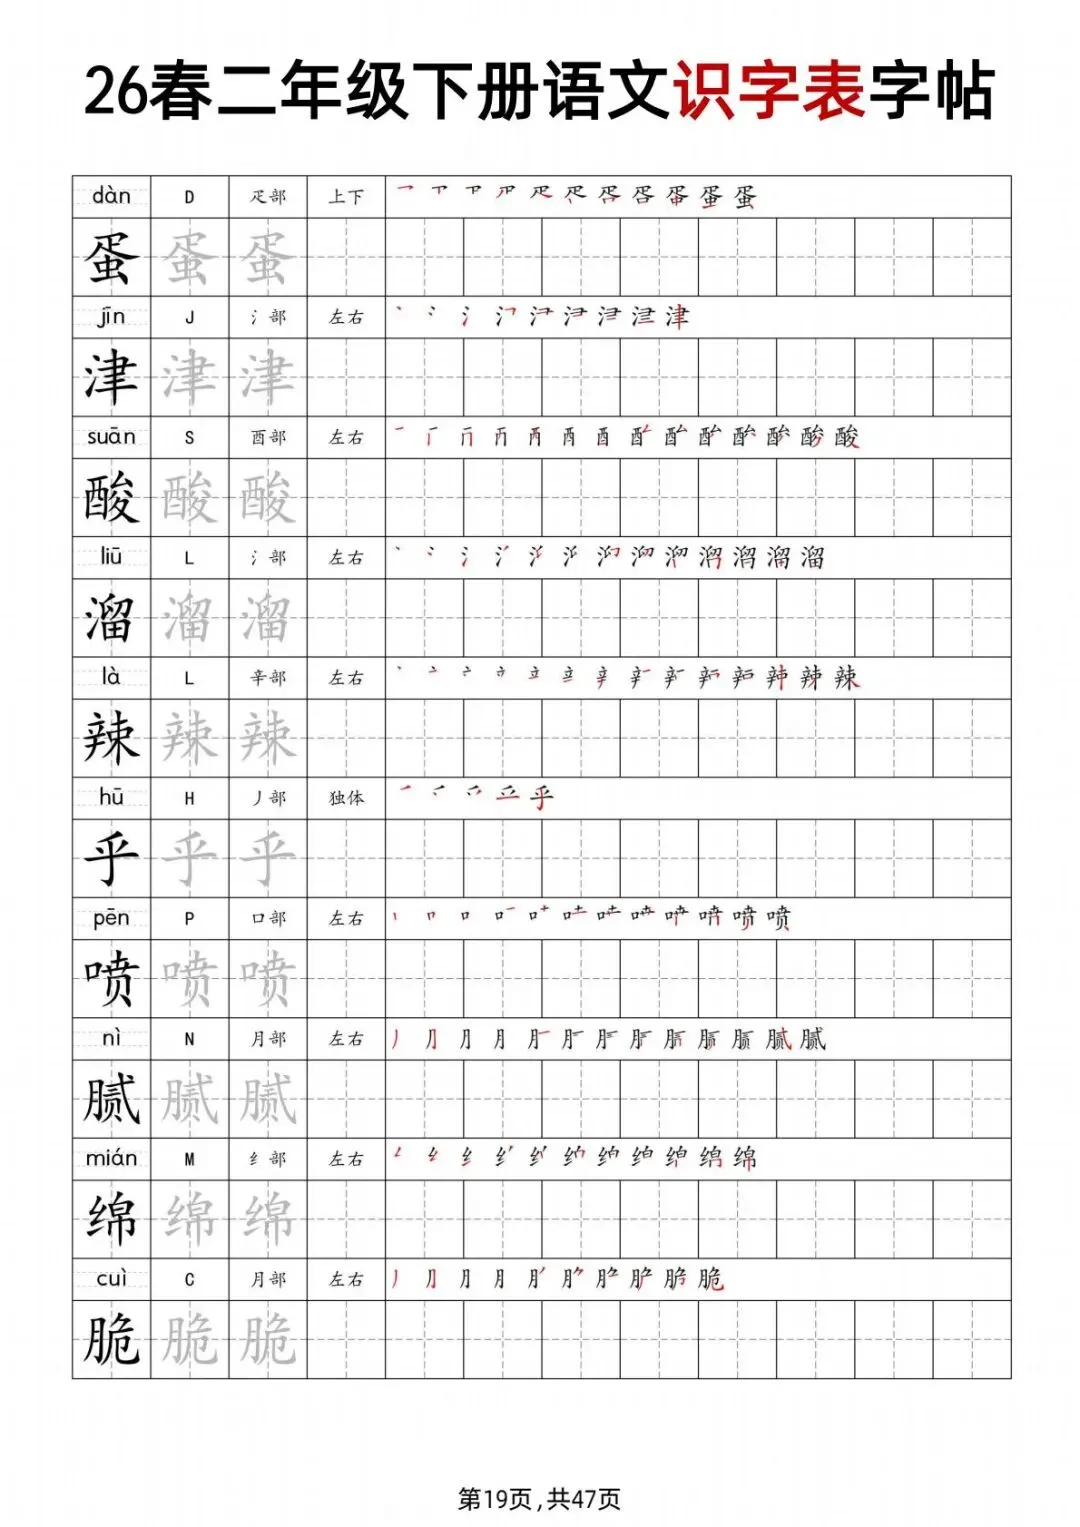 26春二年级下册语文识字表字帖
dàn D 疋部 上下
蛋 蛋 蛋
jīn J 氵部 左右
津 津 津
suān S 酉部 左右
酸 酸 酸
liū L 氵部 左右
溜 溜 溜
là L 辛部 左右
辣 辣 辣
hū H 丿部 独体
乎 乎 乎
pēn P 口部 左右
喷 喷 喷
nì N 月部 左右
腻 腻 腻
mián M 纟部 左右
绵 绵 绵
cuì C 月部 左右
脆 脆 脆
第19页,共47页